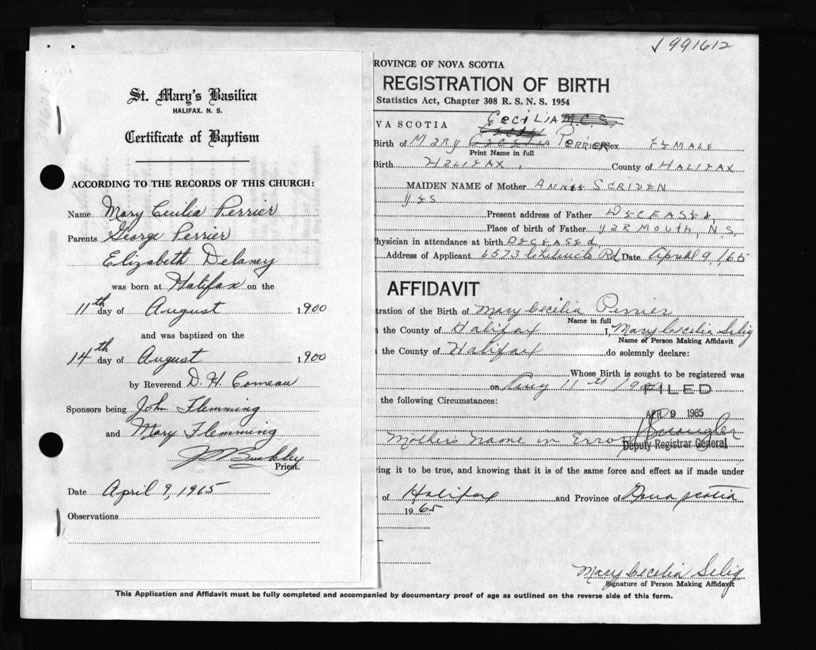 J991612
St. Mary's Basilica
HALIFAX, N. S.
Certificate of Baptism
ACCORDING TO THE RECORDS OF THIS CHURCH:
Name Mary Cecilia Perrier
Parents George Perrier
Elizabeth Delaney
was born at Halifax on the
11th day of August 1900
and was baptized on the
14th day of August 1900
by Reverend D. H. Comeau
Sponsors being John Flemming
and Mary Flemming
Priest.
Date April 9, 1965
Observations
ROVINCE OF NOVA SCOTIA
REGISTRATION OF BIRTH
Statistics Act, Chapter 308 R. S. N. S. 1954
CECILIA M.C.S.
VA SCOTIA
Birth of MARY PERRIER Sex FEMALE
Print Name in full
Birth HALIFAX, County of HALIFAX
MAIDEN NAME of Mother ANNIE SCRIDEN
YES
Present address of Father DECEASED,
Place of birth of Father YARMOUTH, N.S,
hysician in attendance at birth DECEASED
Address of Applicant 6573 Rd Date April 9, /65
AFFIDAVIT
tration of the Birth of Mary Cecilia Perrier
Name in full
the County of Halifax I, Mary Cecilia Selig
Name of Person Making Affidavit
the County of Halifax do solemnly declare:
Whose Birth is sought to be registered was
on Aug 11th
FILED
the following Circumstances:
APR 9 1965
Mother's Name in Error
Deputy Registrar General
ing it to be true, and knowing that it is of the same force and effect as if made under
of Halifax and Province of Nova Scotia
1965
Mary Cecilia Selig
Signature of Person Making Affidavit
This Application and Affidavit must be fully completed and accompanied by documentary proof of age as outlined on the reverse side of this form.